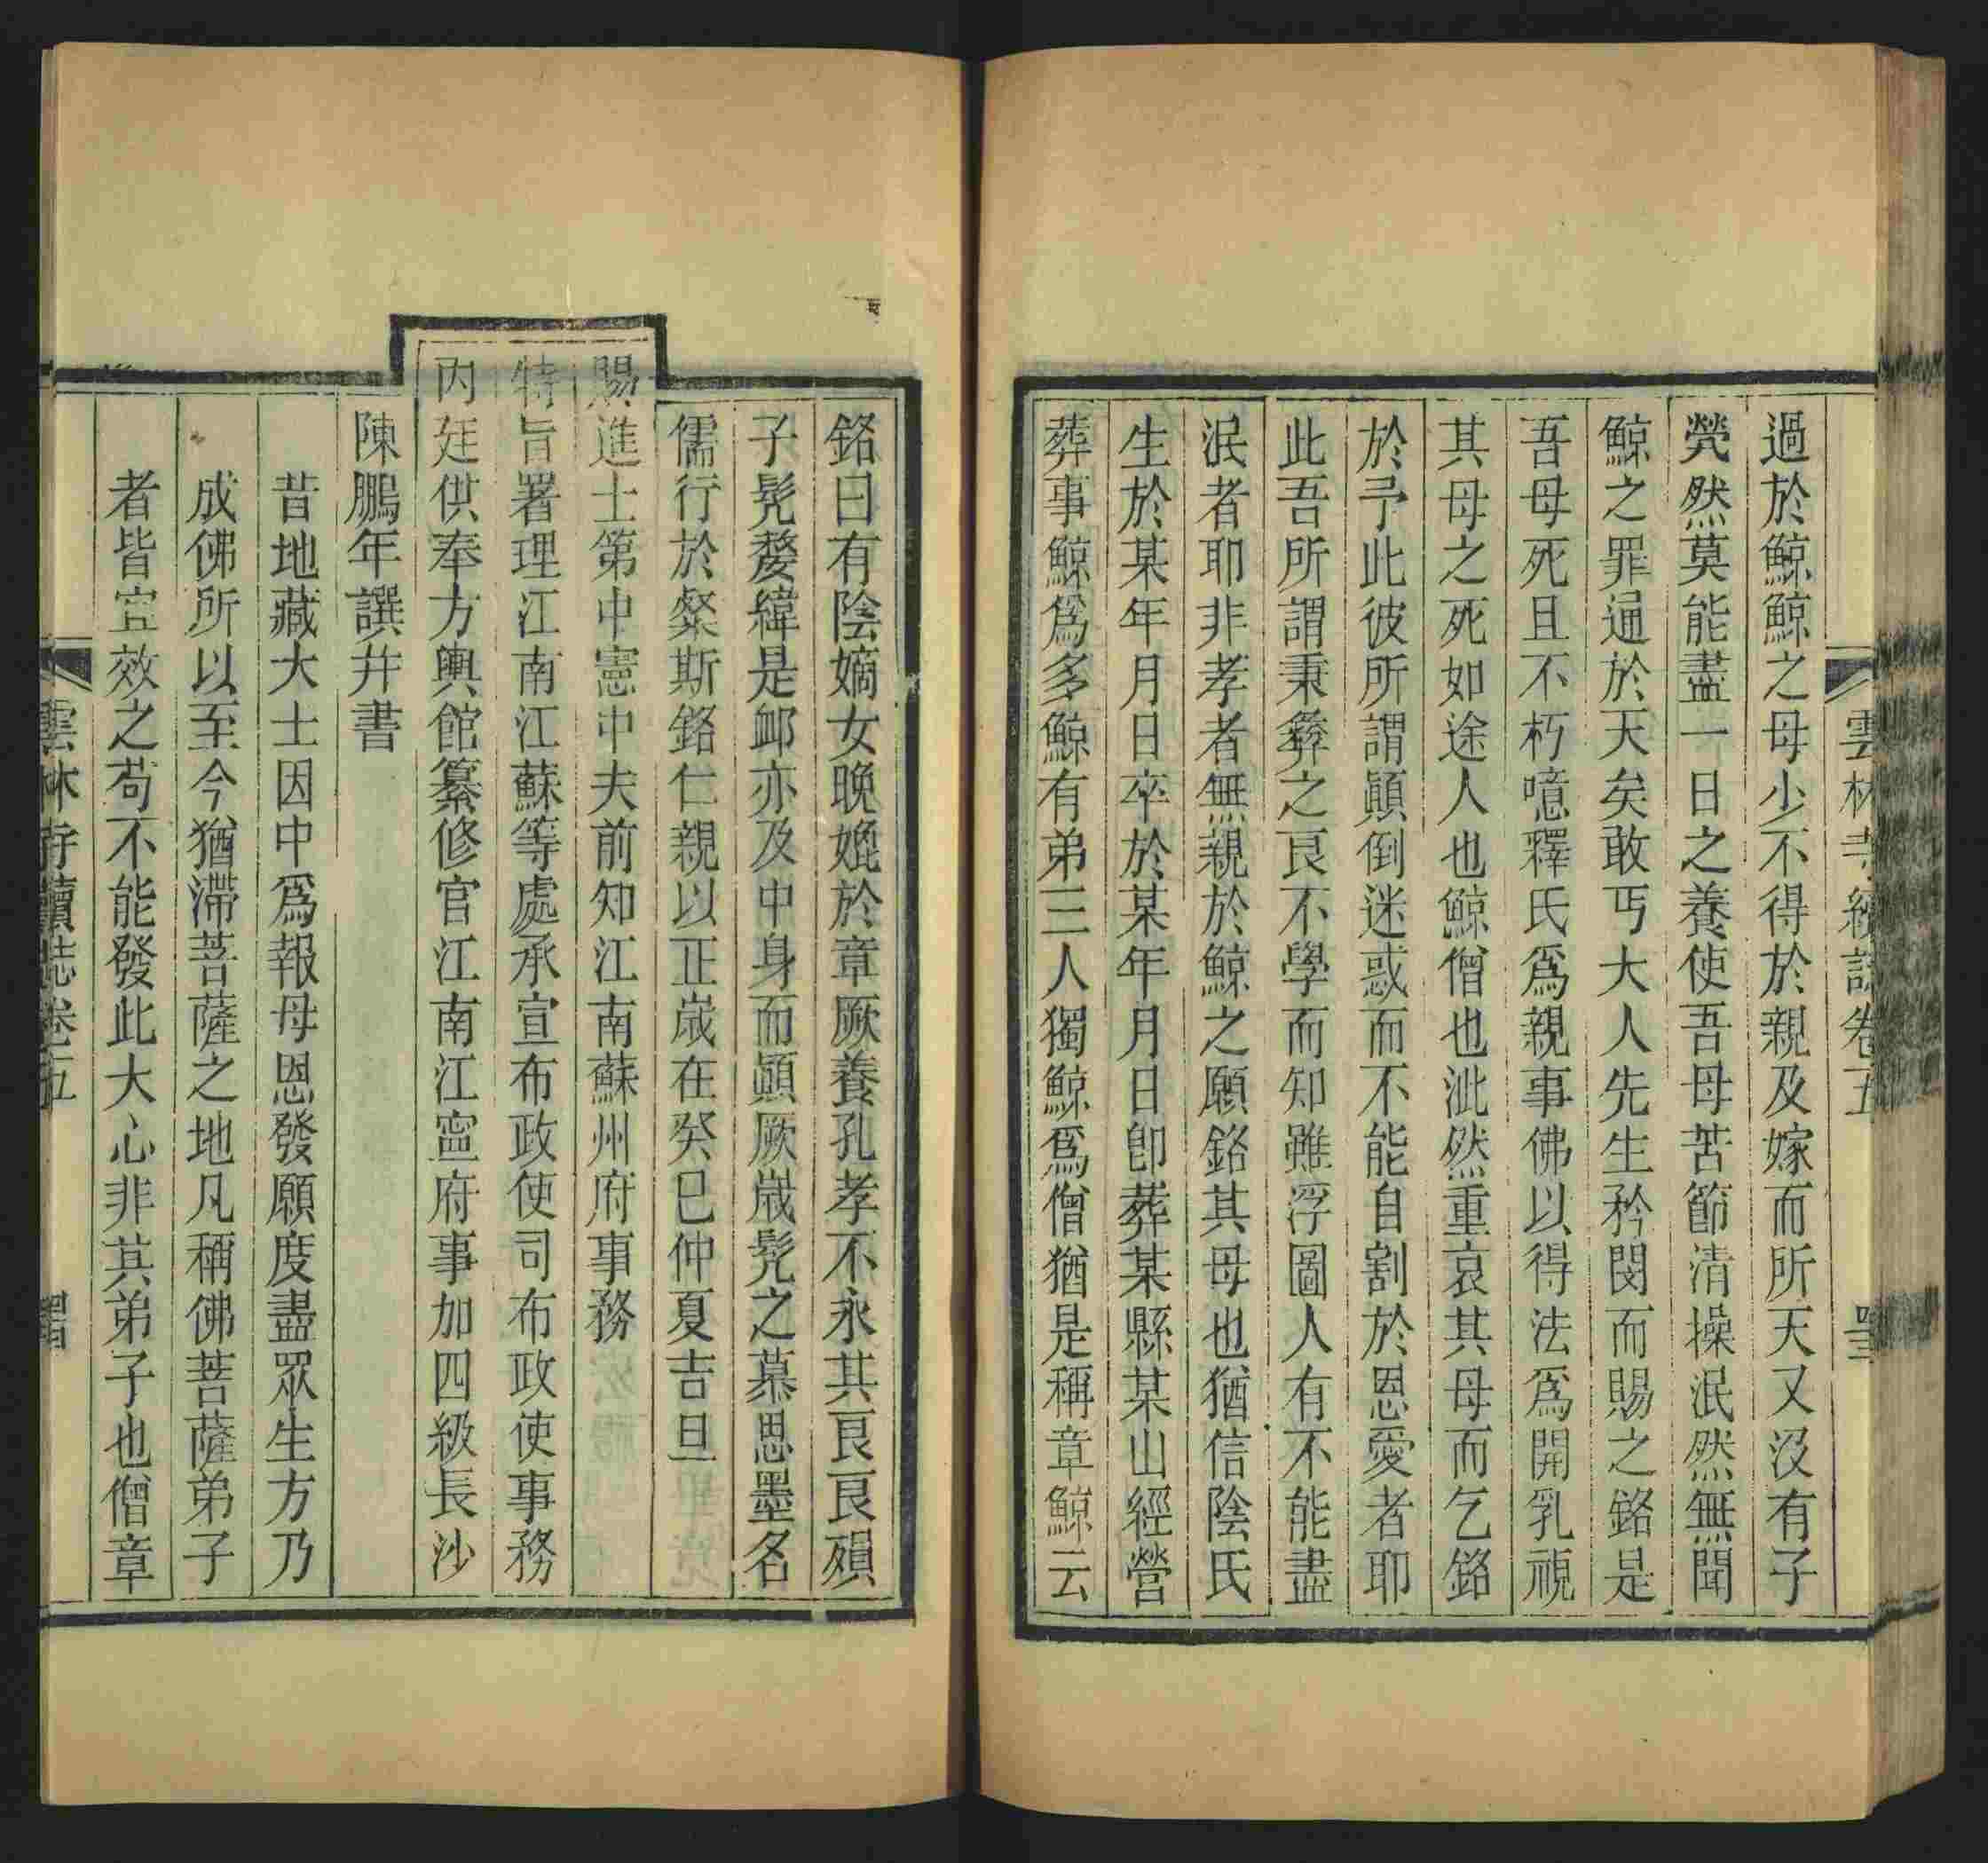 雲林寺續誌卷五
過於鯨鯨之母少不得於親及嫁而所天又沒有子
煢然莫能盡一日之養使吾母苦節清操泯然無聞
鯨之罪通於天矣敢丐大人先生矜閔而賜之銘是
吾母死且不朽噫釋氏爲親事佛以得法爲開乳視
其母之死如途人也鯨僧也泚然重哀其母而乞銘
於予此彼所謂顚倒迷惑而不能自割於恩愛者耶
此吾所謂秉彜之良不學而知雖浮圖人有不能盡
泯者耶非孝者無親於鯨之願銘其母也猶信陰氏
生於某年月日卒於某年月日卽葬某縣某山經營
葬事鯨爲多鯨有弟三人獨鯨爲僧猶是稱章鯨云
銘曰有陰嫡女晚娩於章厥養孔孝不永其良良殞
子髡嫠緯是衈亦及中身而顚厥嵗髡之慕思墨名
儒行於粲斯銘仁親以正嵗在癸巳仲夏吉旦
賜進士第中憲中夫前知江南蘇州府事務
特旨署理江南江蘇等處承宣布政使司布政使事務
內廷供奉方輿館纂修官江南江寧府事加四級長沙
陳鵬年譔幷書
昔地藏大士因中爲報母恩發願度盡眾生方乃
成佛所以至今猶滯菩薩之地凡稱佛菩薩弟子
者皆宜效之苟不能發此大心非其弟子也僧章
雲林寺續誌卷五